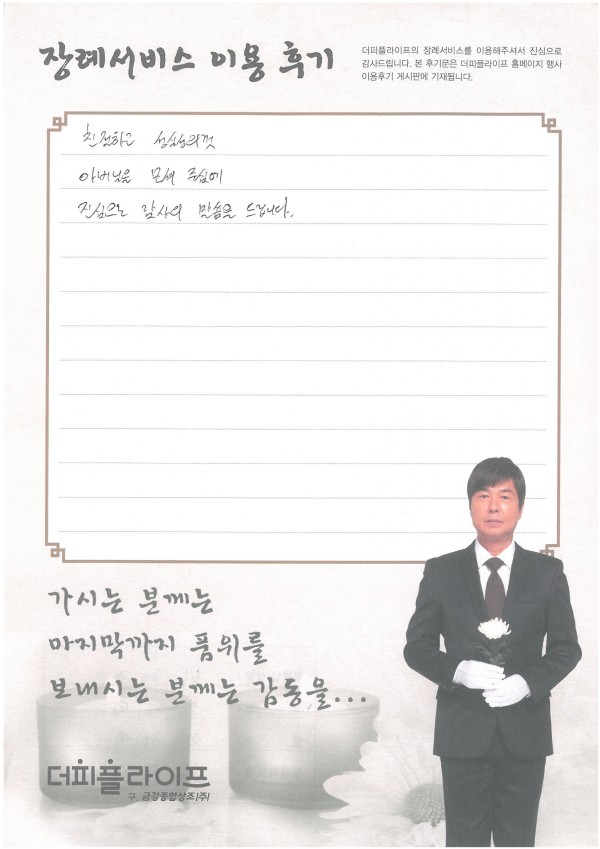 장례서비스 이용 후기
더피플라이프의 장례서비스를 이용해주셔서 진심으로
감사드립니다. 본 후기문은 더피플라이프 홈페이지 행사
이용후기 게시판에 기재됩니다.
친절하고 성심성의껏
아버님을 모셔 주심에
진심으로 감사의 말씀을 드립니다.
가시는 분께는
마지막까지 품위를
보내시는 분께는 감동을...
더피플라이프
구. 금강종합상조(주)